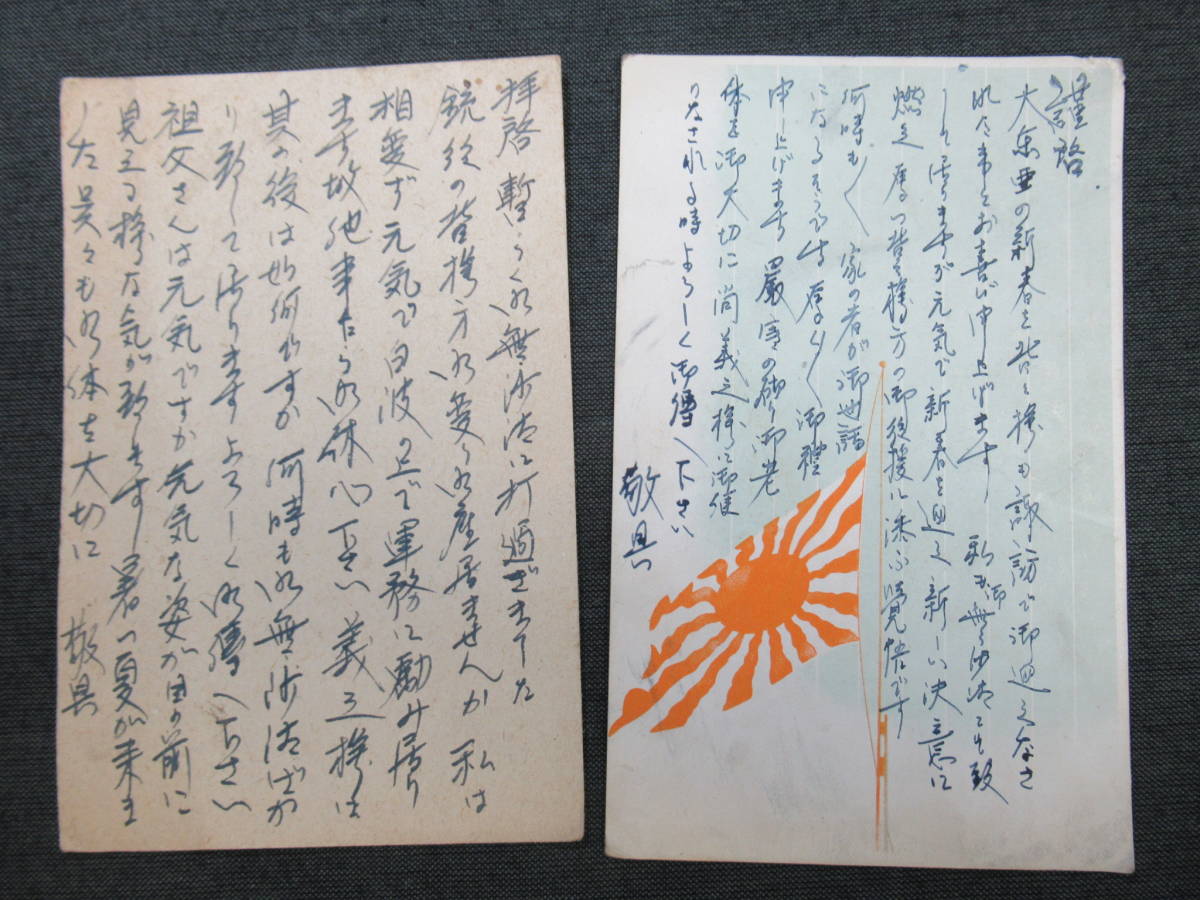 謹啓
大東亜の新春を 様も諏訪で御迎えなさ
れた事とお喜び申上げます 私も御無沙汰 致
して居りますが元気で新春を迎え新しい決意に
燃え 皆々様方の御後援に添ふ覚悟です
何時も〱家の者が御世話
になるそうです厚く〱御禮
申し上げます 嚴寒の砌り御老
体を御大切に尚義之様に御便
りなされる時よろしく御傳へ下さい
敬具
拝啓 暫らく御無沙汰に打過ぎました
銃後の皆様方御変り御座居ませんか 私は
相変ず元気で白波の上で軍務に励み居り
ます故他事乍ら御休心下さい 義之様は
其の後は如何ですか 何時も御無沙汰ばか
り致して居りますよろしく御傳へ下さい
祖父さんは元気ですか元気な姿が目の前に
見える様な気が致します 暑つ夏が来ま
した呉々も御体を大切に 敬具